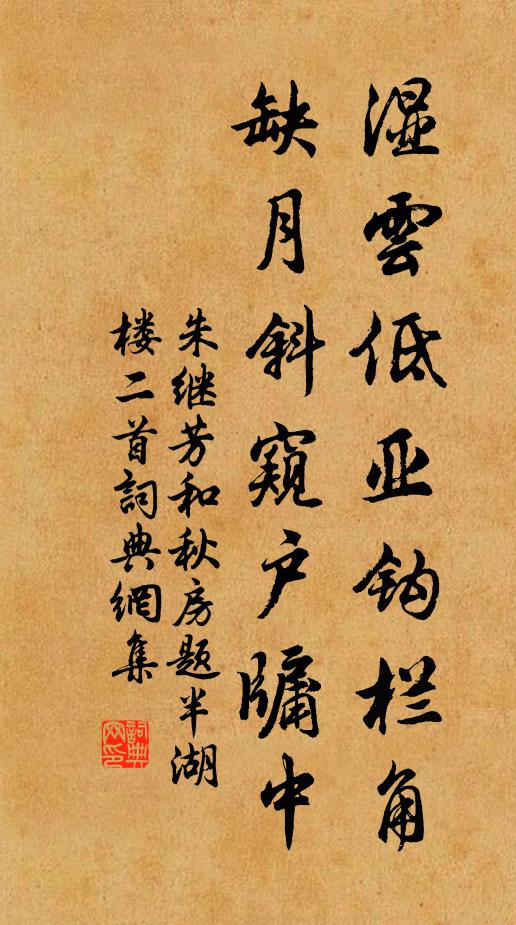 湿雲低亚钩栏角
缺月斜窺户牗中
朱继芳和秋房题半湖
楼二首詞典網集
詞典网印